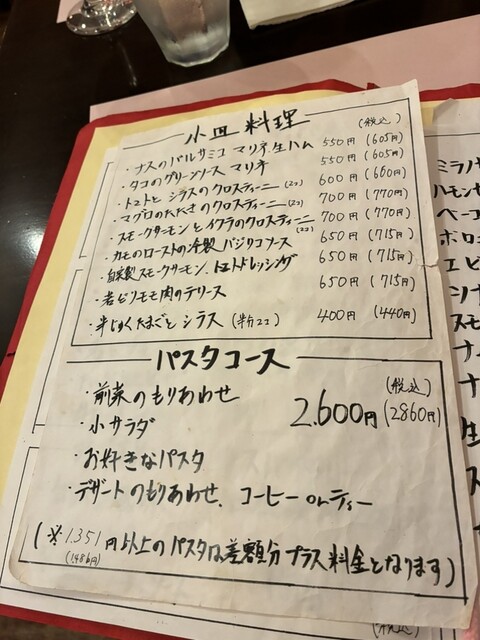 小皿料理
(税込)
・ナスのバルサミコ マリネ.生ハム 550円 (605円)
・タコのグリーンソース マリネ 550円 (605円)
・トマトと シラスのクロスティーニ(2コ) 600円 (660円)
・マグロのたたきのクロスティーニ(2コ) 700円 (770円)
・スモークサーモンとイクラのクロスティーニ(2コ) 700円 (770円)
・カモのローストの冷製 バジリコソース 650円 (715円)
・自家製スモークサーモン.トマトドレッシング 650円 (715円)
・岩ビソモモ肉のテリーヌ 650円 (715円)
・半じゅくたまごと シラス (半分2コ) 400円 (440円)
パスタコース
・前菜のもりあわせ
・小サラダ
・お好きなパスタ
・デザートのもりあわせ. コーヒー orティー
(税込)
2.600円(2860円)
(※1.351円以上のパスタは差額分プラス料金となります)
(1.486円)
ミラノ
ハモン
ベーコ
ボロ
エビ
スモ
ナ
生
(税込)